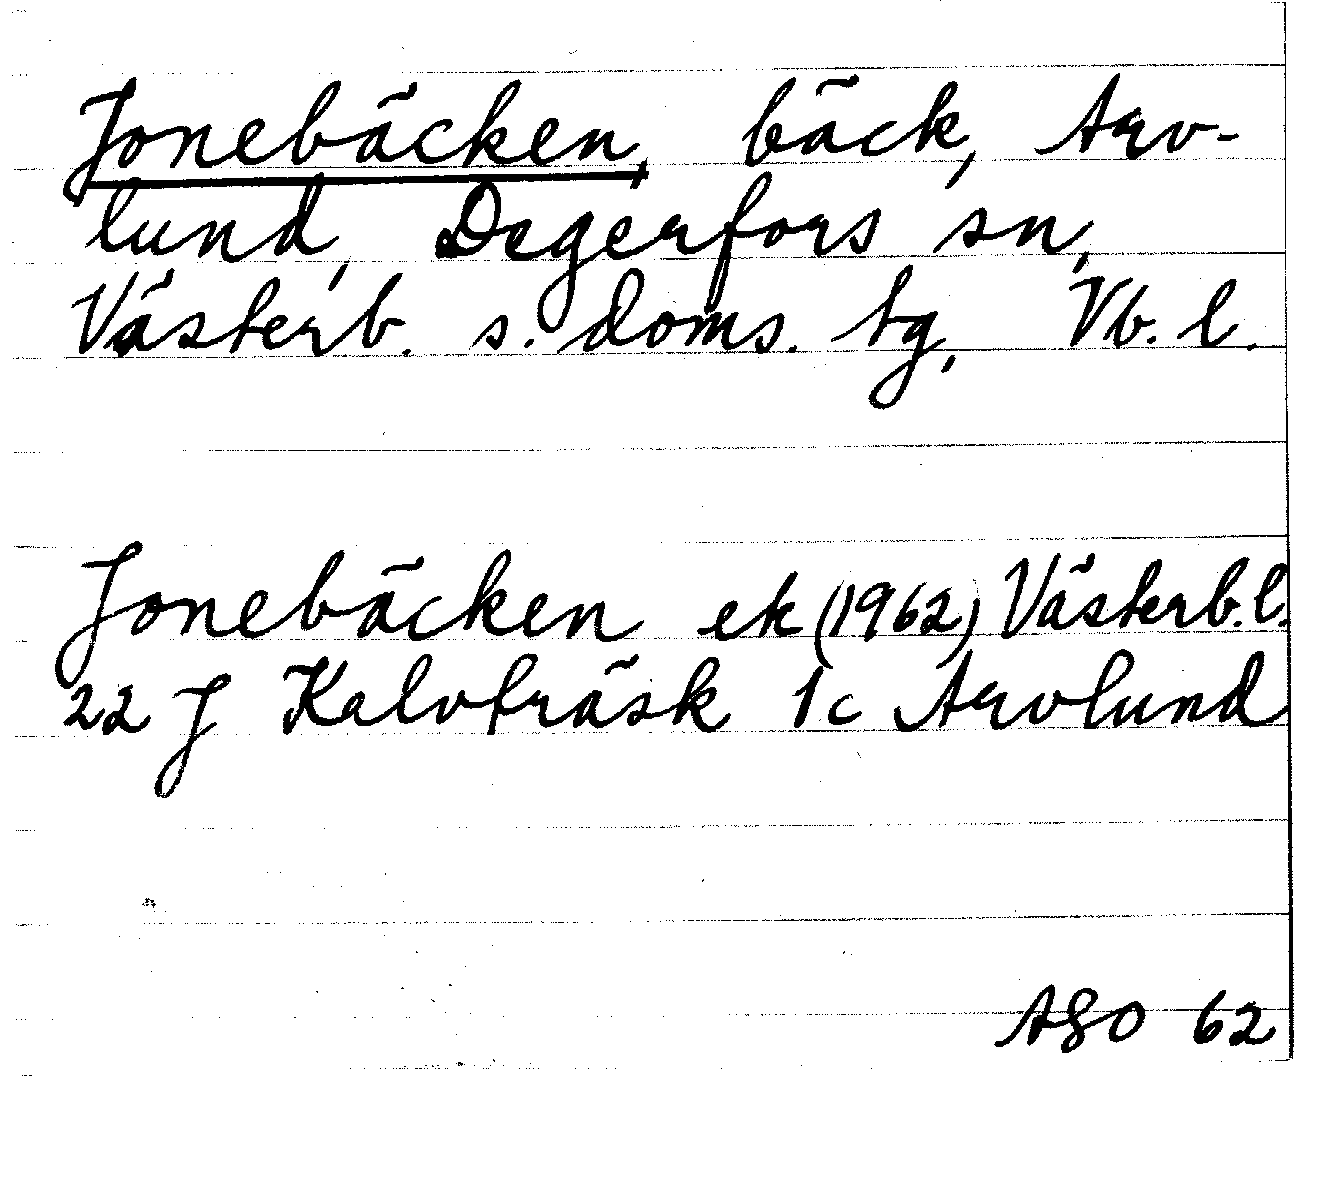 Jonebäcken, bäck, Arv-
lund, Degerfors sn,
Västerb. s. doms. tg, Vb. l.
Jonebäcken ek (1962) Västerb. l.
22 J Kalvträsk 1c Arvlund
ASO 62